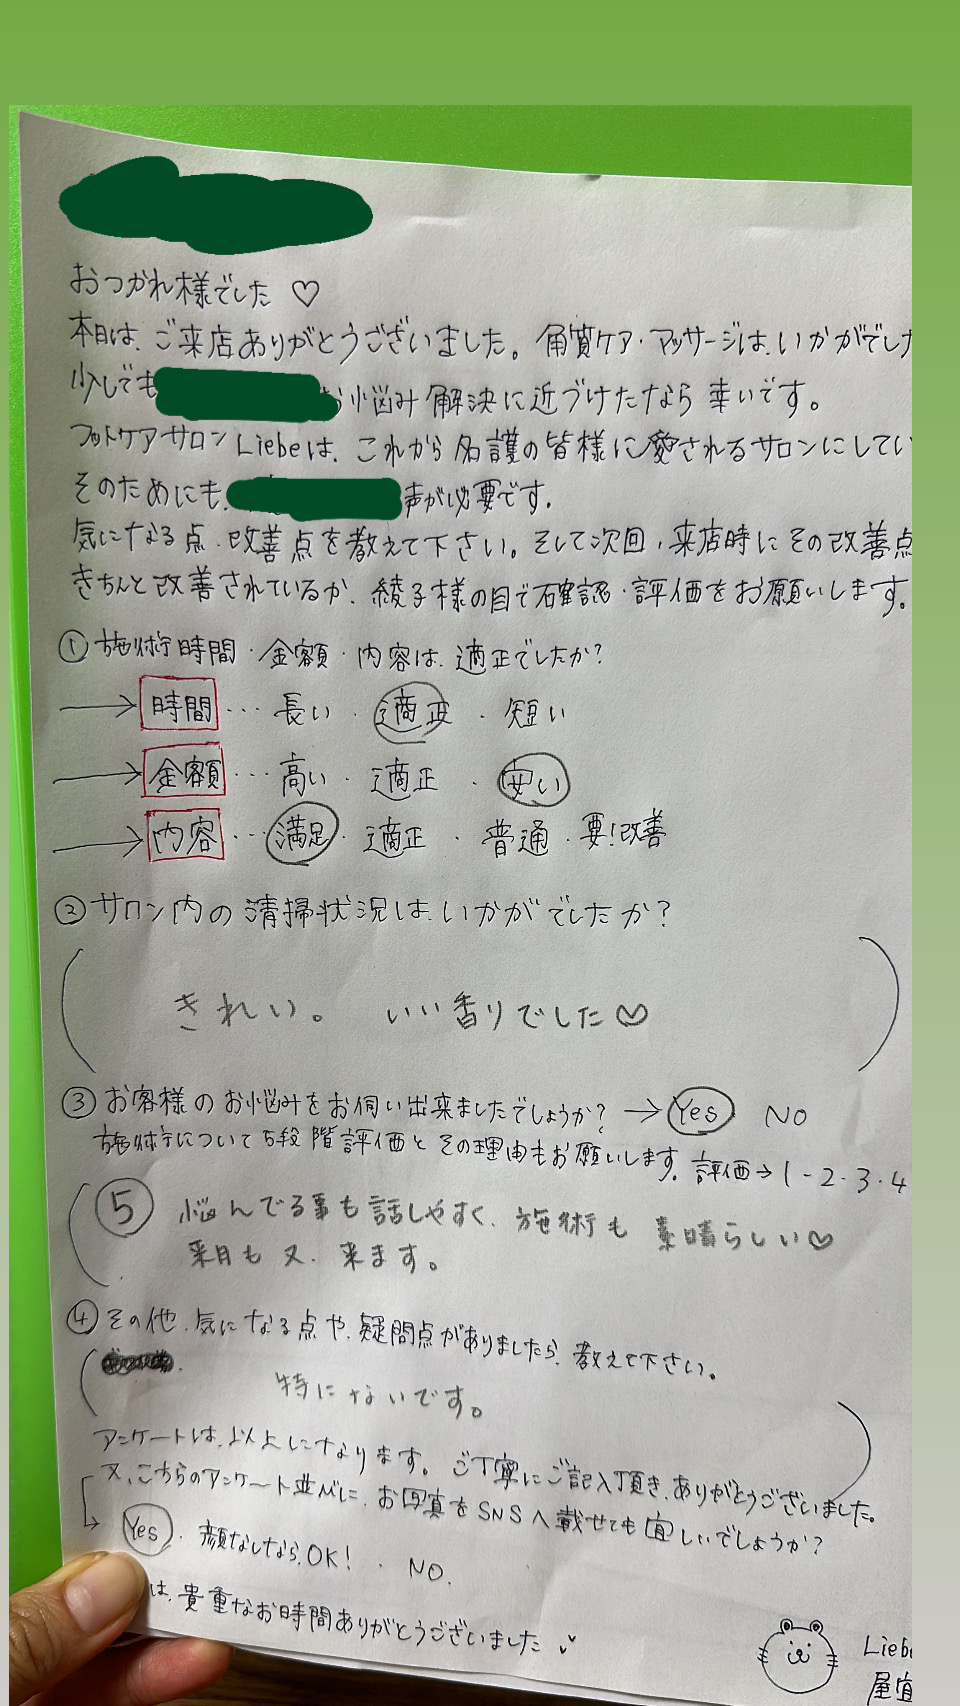 おつかれ様でした ♡
本日は、ご来店ありがとうございました。角質ケア・マッサージは、いかがでした
少しでも お悩み解決に近づけたなら幸いです。
フットケアサロンLiebeは、これから名護の皆様に愛されるサロンにしてい
そのためにも、 声が必要です。
気になる点、改善点を教えて下さい。そして次回、来店時にその改善点
きちんと改善されているか、綾子様の目で確認・評価をお願いします。
① 施術時間・金額・内容は、適正でしたか?
→ 時間 … 長い・適正・短い
→ 金額 … 高い・適正・安い
→ 内容 … 満足・適正・普通・要!改善
② サロン内の清掃状況は、いかがでしたか?
きれい。 いい香りでした♡
③ お客様のお悩みをお伺い出来ましたでしょうか? → Yes NO
施術について5段階評価とその理由もお願いします。評価→1-2・3・4
⑤ 悩んでる事も話しやすく、施術も素晴らしい♡
来月も又、来ます。
④ その他、気になる点や、疑問点がありましたら、教えて下さい。
特にないです。
アンケートは、以上になります。ご丁寧にご記入頂き、ありがとうございました。
又、こちらのアンケート並びに、お写真をSNSへ載せても宜しいでしょうか?
→ Yes・顔なしなら、OK!・NO.
は、貴重なお時間ありがとうございました
Lieb
屋宜